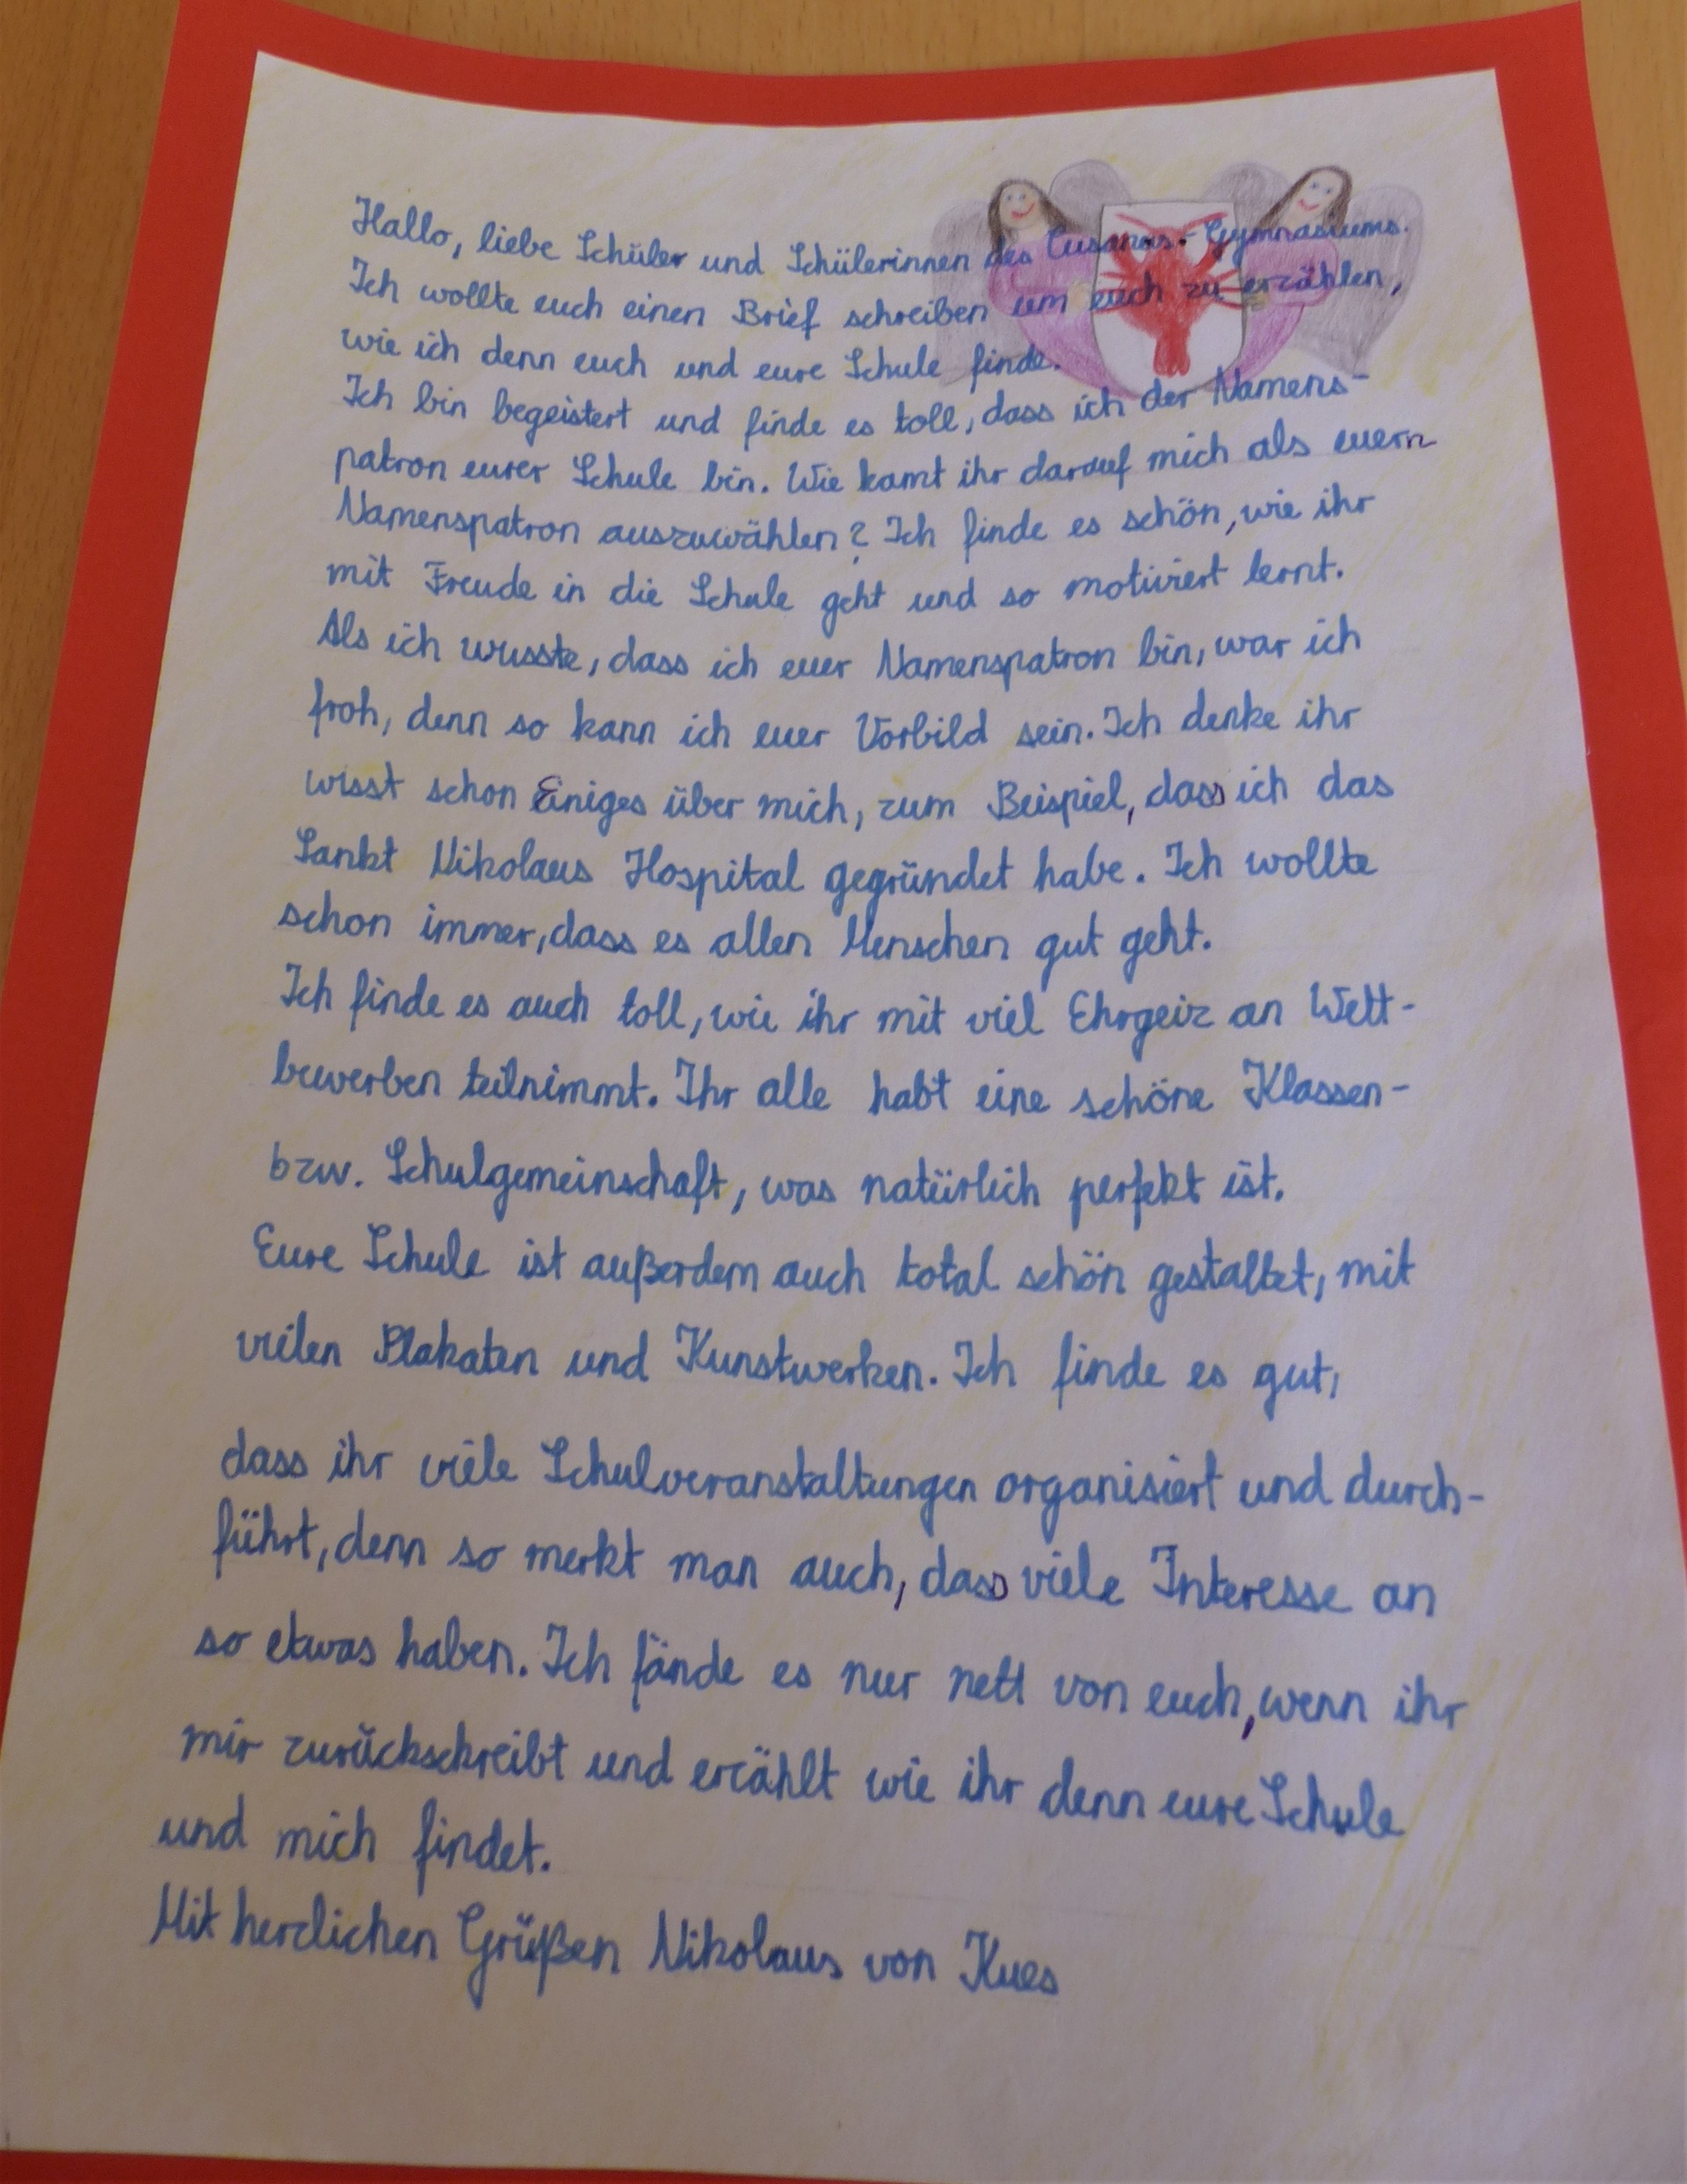 Hallo, liebe Schüler und Schülerinnen des Cusanus-Gymnasiums.
Ich wollte euch einen Brief schreiben um euch zu erzählen,
wie ich denn euch und eure Schule finde.
Ich bin begeistert und finde es toll, dass ich der Namens-
patron eurer Schule bin. Wie kamt ihr darauf mich als euern
Namenspatron auszuwählen? Ich finde es schön, wie ihr
mit Freude in die Schule geht und so motiviert lernt.
Als ich wusste, dass ich euer Namenspatron bin, war ich
froh, denn so kann ich euer Vorbild sein. Ich denke ihr
wisst schon Einiges über mich, zum Beispiel, dass ich das
Sankt Nikolaus Hospital gegründet habe. Ich wollte
schon immer, dass es allen Menschen gut geht.
Ich finde es auch toll, wie ihr mit viel Ehrgeiz an Wett-
bewerben teilnimmt. Ihr alle habt eine schöne Klassen-
bzw. Schulgemeinschaft, was natürlich perfekt ist.
Eure Schule ist außerdem auch total schön gestaltet, mit
vielen Plakaten und Kunstwerken. Ich finde es gut,
dass ihr viele Schulveranstaltungen organisiert und durch-
führt, denn so merkt man auch, dass viele Interesse an
so etwas haben. Ich fände es nur nett von euch, wenn ihr
mir zurückschreibt und erzählt wie ihr denn eure Schule
und mich findet.
Mit herzlichen Grüßen Nikolaus von Kues